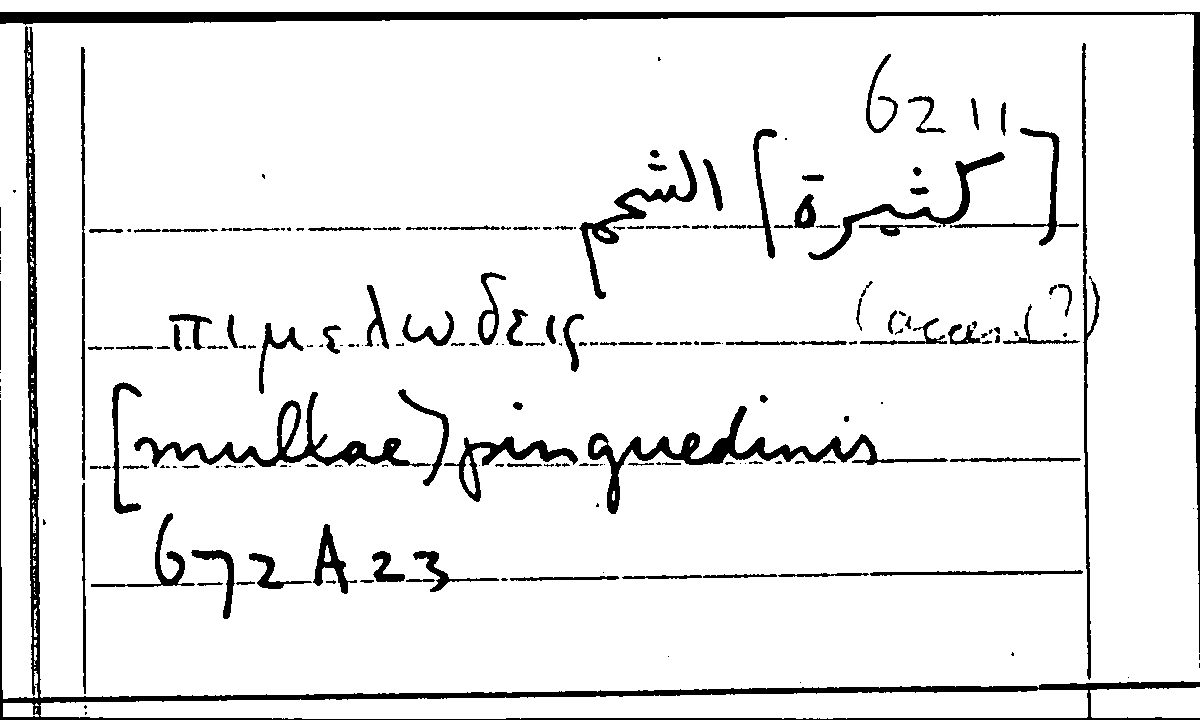 6211
[كثيرة] الشحم
πιμελωδεις (accent?)
[multae) pinguedinis
672 A 23